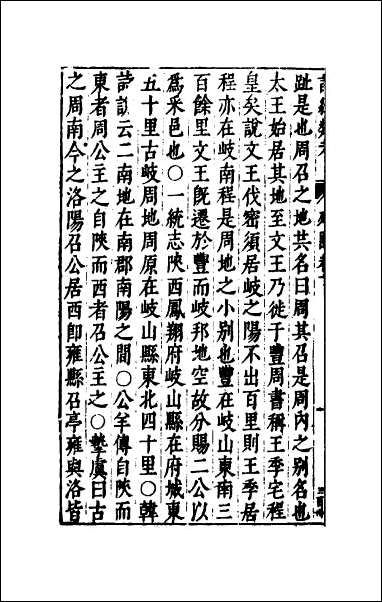 趾是也周召之地共名曰周其召是周内之别名也
太王始居其地至文王乃徙于豐周書稱王季宅程
皇矣說文王伐密須居岐之陽不出百里則王季居
程亦在岐南程是周地之小别也豐在岐山東南三
百餘里文王既遷於豐而岐邦地空故分賜二公以
爲采邑也○一統志陝西鳳翔府岐山縣在府城東
五十里古岐周地周原在岐山縣東北四十里○韓
詩說云二南地在南郡南陽之間○公羊傳自陝而
東者周公主之自陝而西者召公主之○摯虞曰古
之周南今之洛陽召公居西卽雍縣召亭雍與洛皆